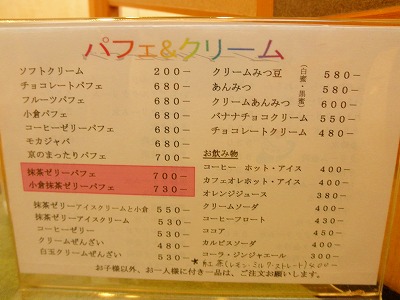 パフェ&クリーム
ソフトクリーム 200-
チョコレートパフェ 680-
フルーツパフェ 680-
小倉パフェ 680-
コーヒーゼリーパフェ 680-
モカジャバ 680-
京のまったりパフェ 700-
抹茶ゼリーパフェ 700-
小倉抹茶ゼリーパフェ 730-
抹茶ゼリーアイスクリームと小倉 550-
抹茶ゼリーアイスクリーム 530-
コーヒーゼリー 530-
クリームぜんざい 480-
白玉クリームぜんざい 530-
クリームみつ豆 580-
あんみつ 580-
クリームあんみつ 600-
(白蜜・黒蜜)
バナナチョコクリーム 550-
チョコレートクリーム 480-
お飲み物
コーヒー ホット・アイス 400-
カフェオレホット・アイス 400-
オレンジジュース 380-
クリームソーダ 400-
コーヒーフロート 430-
ココア 450-
カルピスソーダ 400-
コーラ・ジンジャエール 300-
*紅茶(レモン・ミルク・ストレート)400-
お子様以外、お一人様に付き一品は、ご注文お願いします。